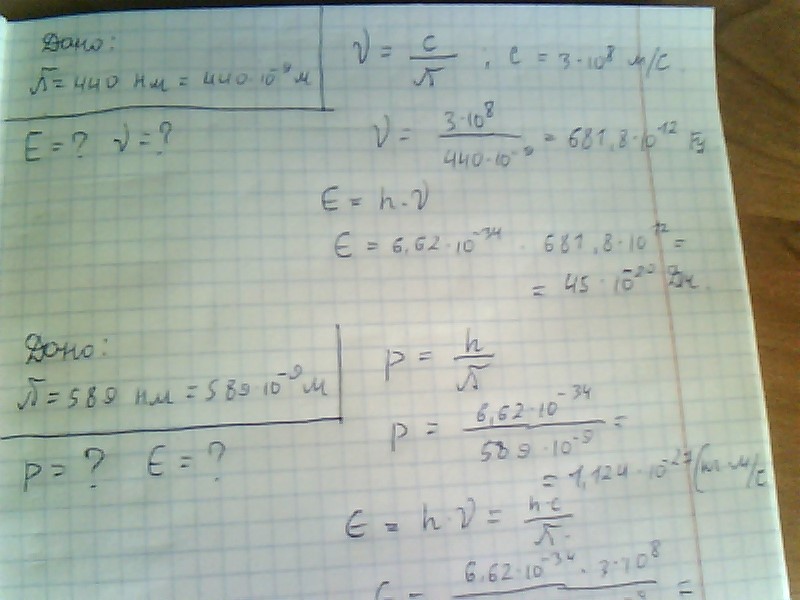 Дано:
λ = 440 нм = 440·10⁻⁹ м
E = ? ν = ?
ν = c/λ ; c = 3·10⁸ м/с
ν = 3·10⁸/440·10⁻⁹ = 681,8·10¹² Гц
E = h·ν
E = 6,62·10⁻³⁴ · 681,8·10¹² =
= 45·10⁻²⁰ Дж.
Дано:
λ = 589 нм = 589·10⁻⁹ м
p = ? E = ?
p = h/λ
p = 6,62·10⁻³⁴/589·10⁻⁹ =
= 1,124·10⁻²⁷ (кг·м/с
E = h·ν = h·c/λ.
E = 6,62·10⁻³⁴ · 3·10⁸ =